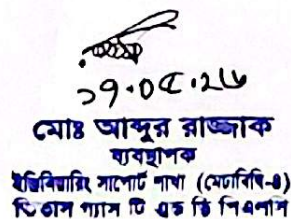 ১৭.০৫.২৬
মোঃ আব্দুর রাজ্জাক
ব্যবস্থাপক
ইঞ্জিনিয়ারিং সাপোর্ট শাখা (মেটাবিবি-৪)
তিতাস গ্যাস টি এন্ড ডি পিএলসি